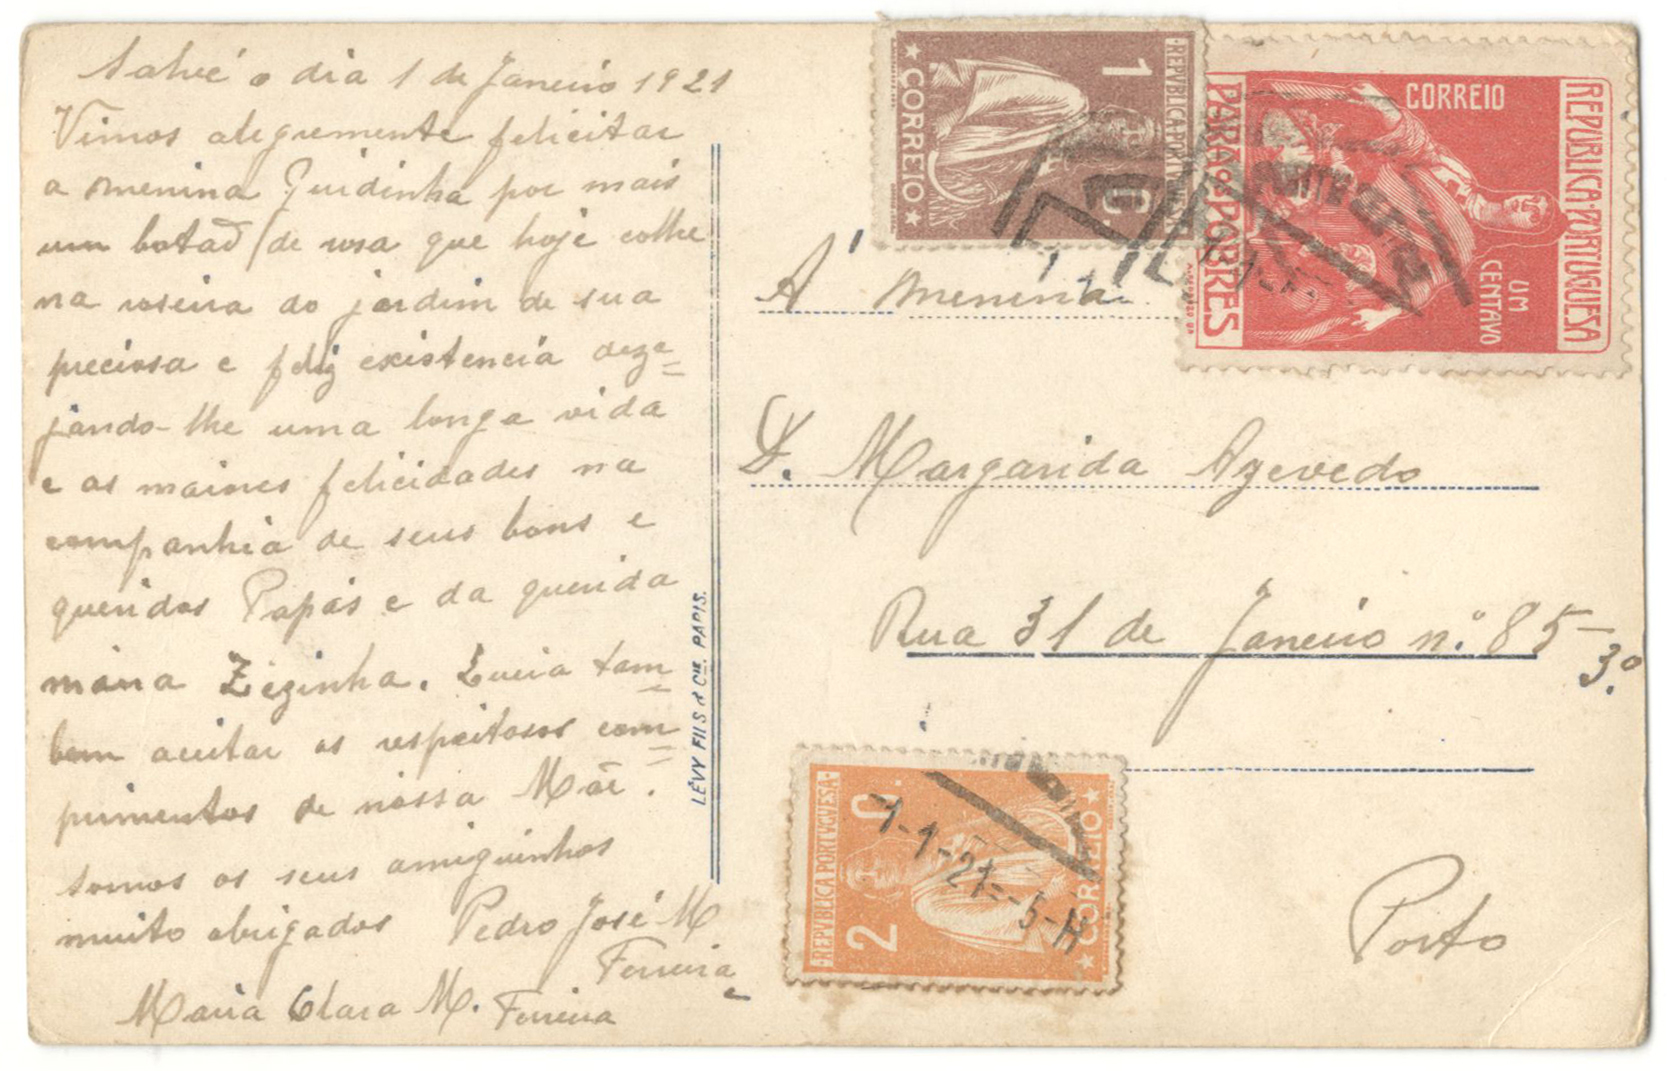 Salvé o dia 1 de Janeiro 1921
Vimos alegremente felicitar
a menina Guidinha por mais
um botaõ de rosa que hoje colhe
na roseira do jardim de sua
preciosa e feliz existencia deze=
jando-lhe uma longa vida
e as maiores felicidades na
companhia de seus bons e
queridos Papás e da querida
mana Zézinha. Queira tam=
bem aceitar os respeitosos com=
primentos de nossa Mãe.
Somos os seus amiguinhos
muito obrigados Pedro José M
Ferreira
e
Maria Clara M. Ferreira
LÉVY FILS & Cie. PARIS.
1 C.
REPVBLICA PORTVGVESA
CORREIO
CORREIO
REPÚBLICA PORTUGUESA
PARA OS POBRES
UM CENTAVO
A' menina
D. Margarida Azevedo
Rua 31 de Janeiro n.º 85-
3.º
Porto
2 C.
REPVBLICA PORTVGVESA
CORREIO
1-1-21 -5-H